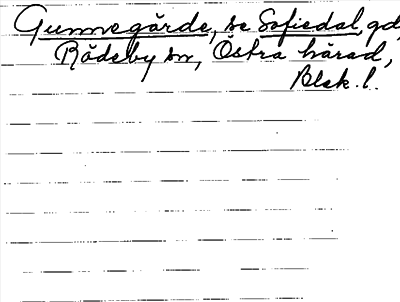 Gunnegärde, se Sofiedal, gd,
Rödeby sn, Östra härad,
Blek. l.